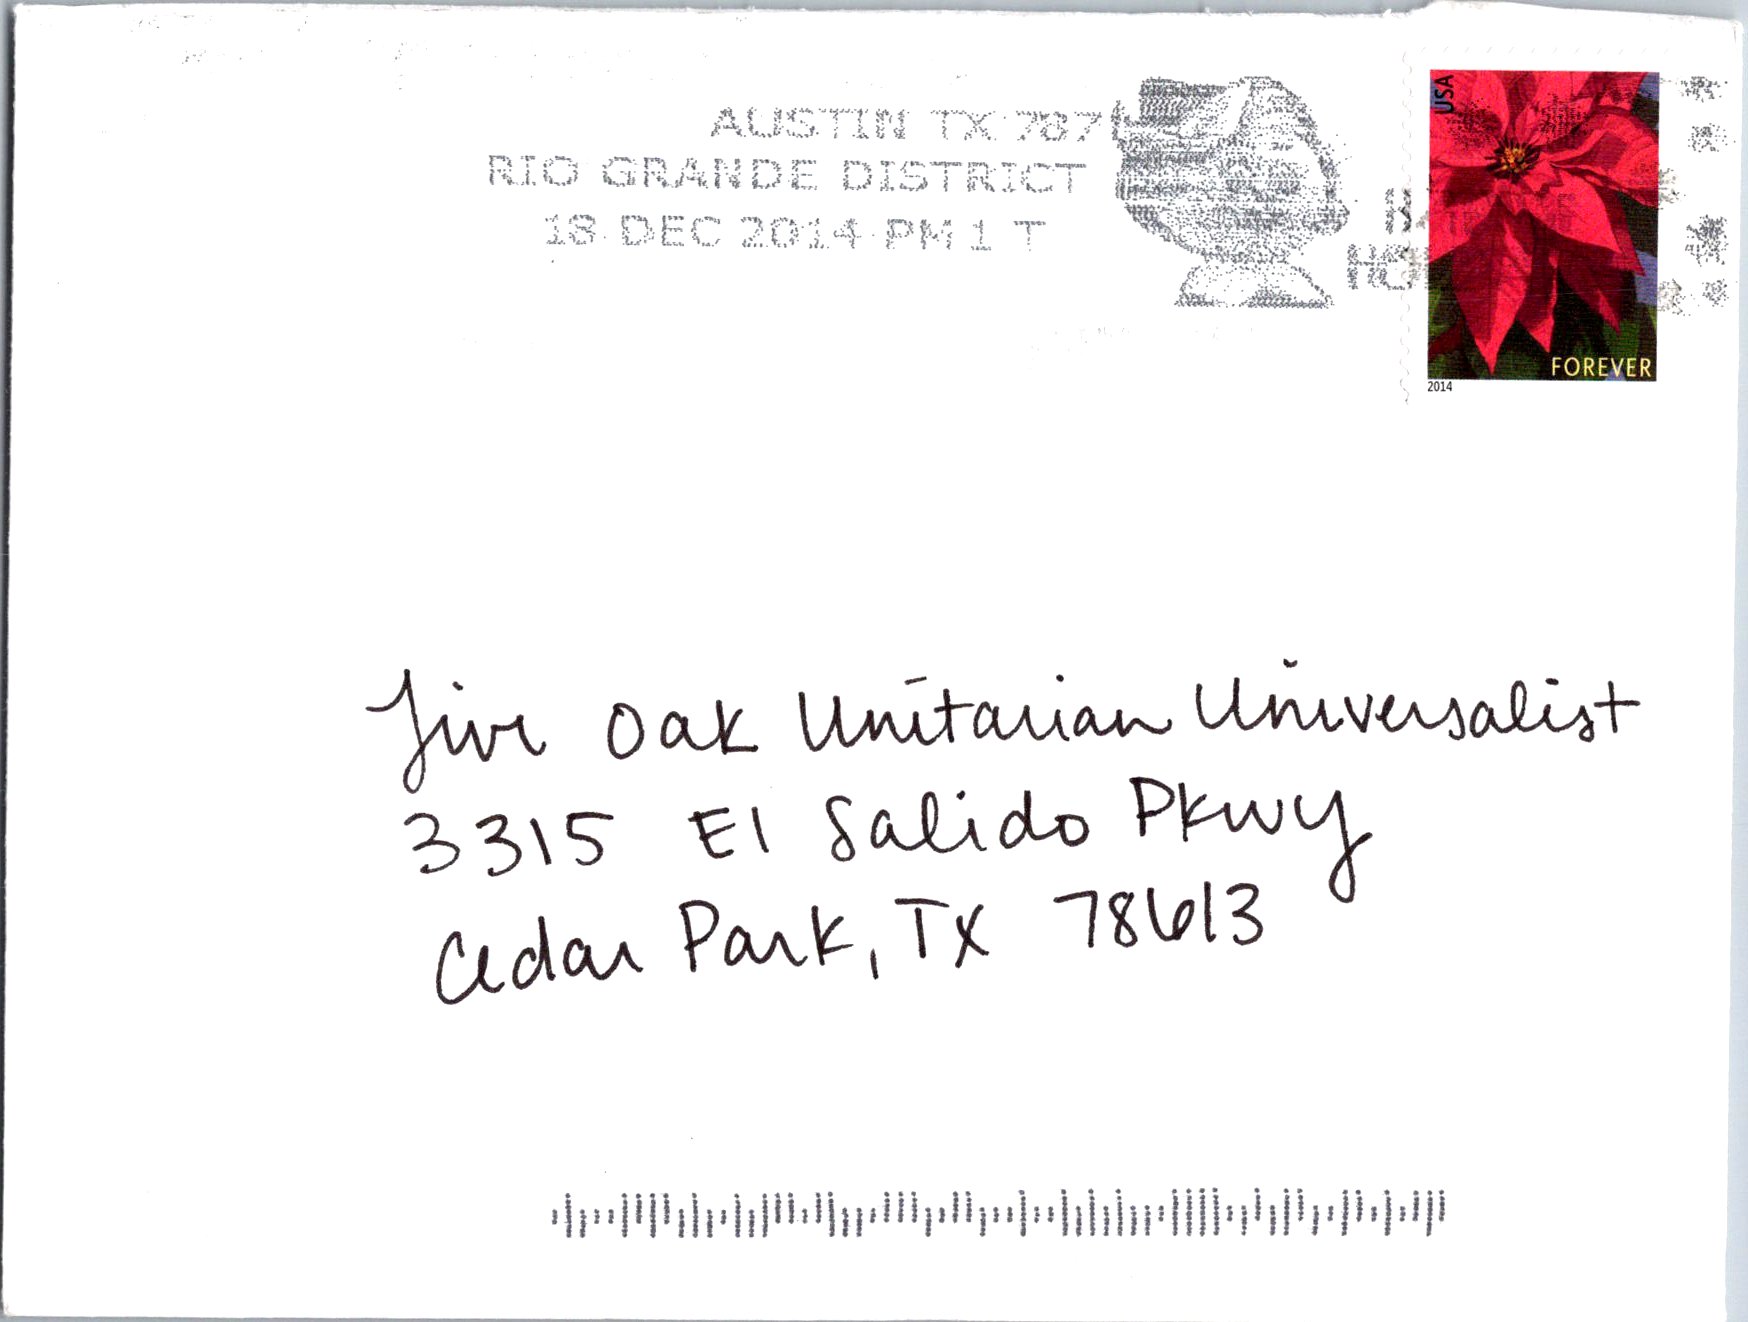 AUSTIN TX 787
RIO GRANDE DISTRICT
18 DEC 2014 PM 1 T
USA
FOREVER
2014
Live Oak Unitarian Universalist
3315 El Salido Pkwy
Cedar Park, TX 78613